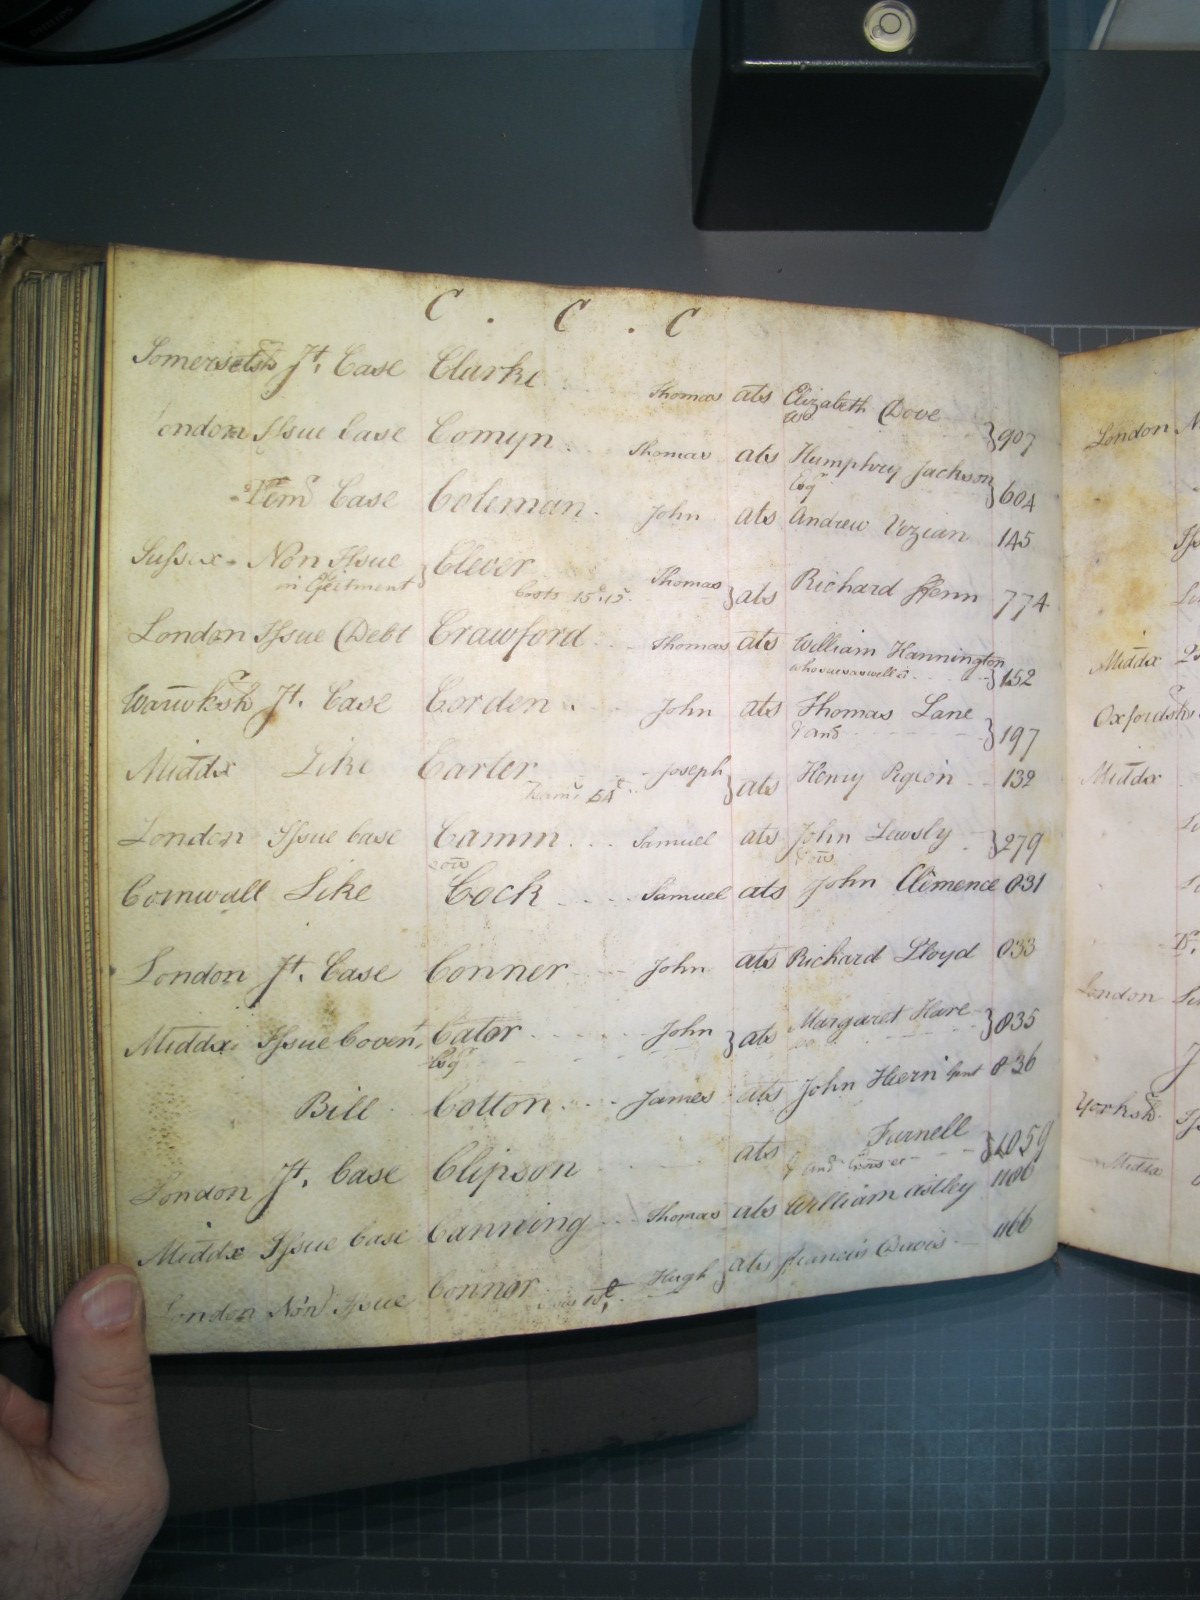 C . C . C
Somersetsh Jt. Case Clarke Thomas ats Elizabeth Dove
907
London Issue Case Comyn Thomas ats Humphry Jackson
Esqr 604
Case Coleman John ats Andrew Vezian 145
Sussex Non Issue Clever Thomas ats Richard Fenn 774
in Ejectment Costs
London Issue Debt Crawford Thomas ats William Hannington
who sues as well &c 152
Warwksh Jt. Case Corden John ats Thomas Lane
& anr 197
Middx Like Carter Joseph ats Henry Pigeon 132
54
London Issue Case Camm Samuel ats John Lewsly 279
Cornwall Like Cock Samuel ats John Climence 831
London Jt. Case Conner John ats Richard Lloyd 833
Middx Issue Covent. Cator John ats Margaret Hare 835
Esqr
Bill Cotton James ats John Hern Gent 836
London Jt. Case Clipson ats Furnell
1059
Middx Issue Case Canning Thomas ats William Astley 1106
London Non Issue Connor Hugh ats Francis Davis 1166
London
Middx
Oxfordsh
Middx
London
Yorksh
Middx